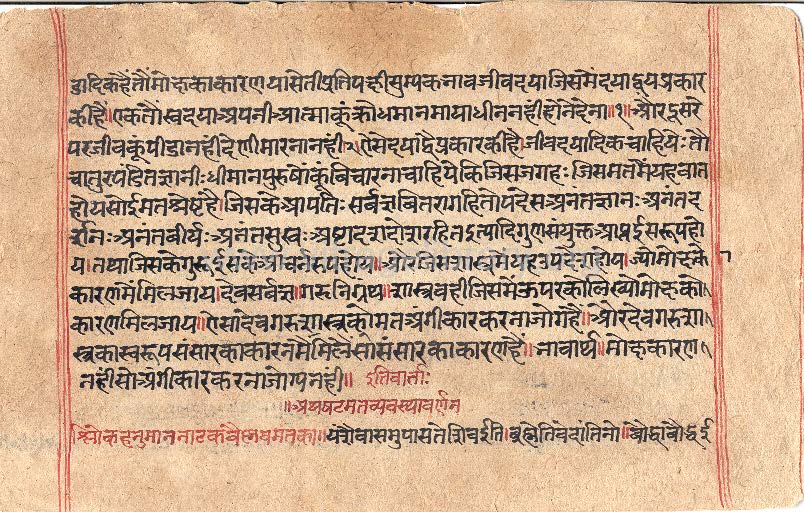 डादिक हैं तौ मोक्ष का कारण या सेती प्रतिपक्षी सुम्यक नाव जीवदया जिसमें दयाद्वय प्रकार
की है॥ एक तौ स्वदया अपनी आत्मा कूं क्रोध मान माया धीन नहीं होने देना॥१॥ और दुसरे
पर जीव कूं पीडा नहीं देणी मारना नहीं २ ऐसे दया द्वै प्रकार की है। जीवदयादिक चाहिये: तौ
चातुर पंडित ज्ञानी: धीमान पुरुषां कूं विचारना चाहिये कि जिस जगह: जिस मत मैं यह बात
होय सोई मत श्रेष्ठ है। जिस के आपति: सर्वज्ञ वितराग हितोपदेस अनंत ज्ञान: अनंत द
र्शन: अनंत वीर्य: अनंत सुख: अष्टादश दोश रहित इत्यादि गुण संयुक्त आप्त ईस रूप हो
य। तथा जिस के गुरू इस के आचर्न रूप होय॥ और जिस शास्त्र मे यह उपदेश होय। ज्यो मोक्ष के
कारण मैं मिल जाय। देव सर्वज्ञ। गरू निग्रंथ॥ शास्त्र वही जिस मैं ऊपर को लिख्यो मोक्ष को
कारण मिल जाय॥ ऐसा देव गरू शास्त्र को मत अंगीकार करना जोग है॥ और देव गरू शा
स्त्र का स्वरूप संसार का कारन मैं मिलै सो संसार का कारण है॥ नावार्थ॥ मोक्ष कारण
नहीं सो अंगीकार करना जोग्य नहीं॥ इति वार्ता:
॥अथ षटमत व्यवस्था वर्णन
श्लोक हनुमान नाटक कं वैश्नव मत का॥ यं शैवा समुपासते शिव इति। ब्रह्मेति वेदांतिनो॥ बौद्धा बौद्ध ई